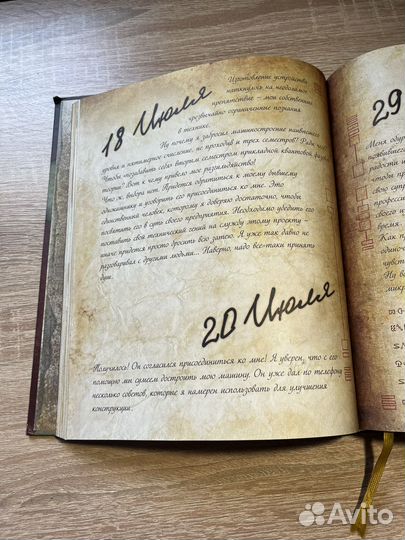 18 Июля
Изготовление устройства
наткнулось на неодолимое
препятствие – мои собственные
чрезвычайно ограниченные познания
в технике.
Ну почему я забросил машиностроение наивысшего
уровня и пятимерное счисление, не проходив и трех семестров? Ради чего?
Чтобы позабавить себя вторым семестром прикладной квантовой физ
тории? Вот к чему привело мое разгильдяйство!
Что ж, выбора нет. Придется обратиться к моему бывшему
однокашнику и уговорить его присоединиться ко мне. Это
единственный человек, которому я доверяю достаточно, чтобы
посвятить его в суть своего предприятия. Необходимо убедить его
поставить свой технический гений на службу этому проекту –
иначе придется просто бросить всю затею. Я уже так давно не
разговаривал с другими людьми... Наверно, надо все-таки принять
душ.
20 Июля
Получилось! Он согласился присоединиться ко мне! Я уверен, что с его
помощью мы сумеем достроить мою машину. Он уже дал по телефону
несколько советов, которые я намерен использовать для улучшения
конструкции.
29
Меня обур
наивысшего
чтобы п
ково
кажд
чтоб
свою су
професси
время.
Как п
одиноч
чувст
В
микр
Avito